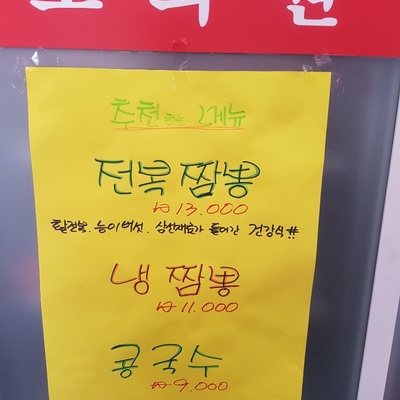 추천하는 메뉴
전복짬뽕
₩13,000
활전복, 능이버섯, 삼선재료가 들어간 건강식#
냉짬뽕
₩11,000
콩국수
₩9,000